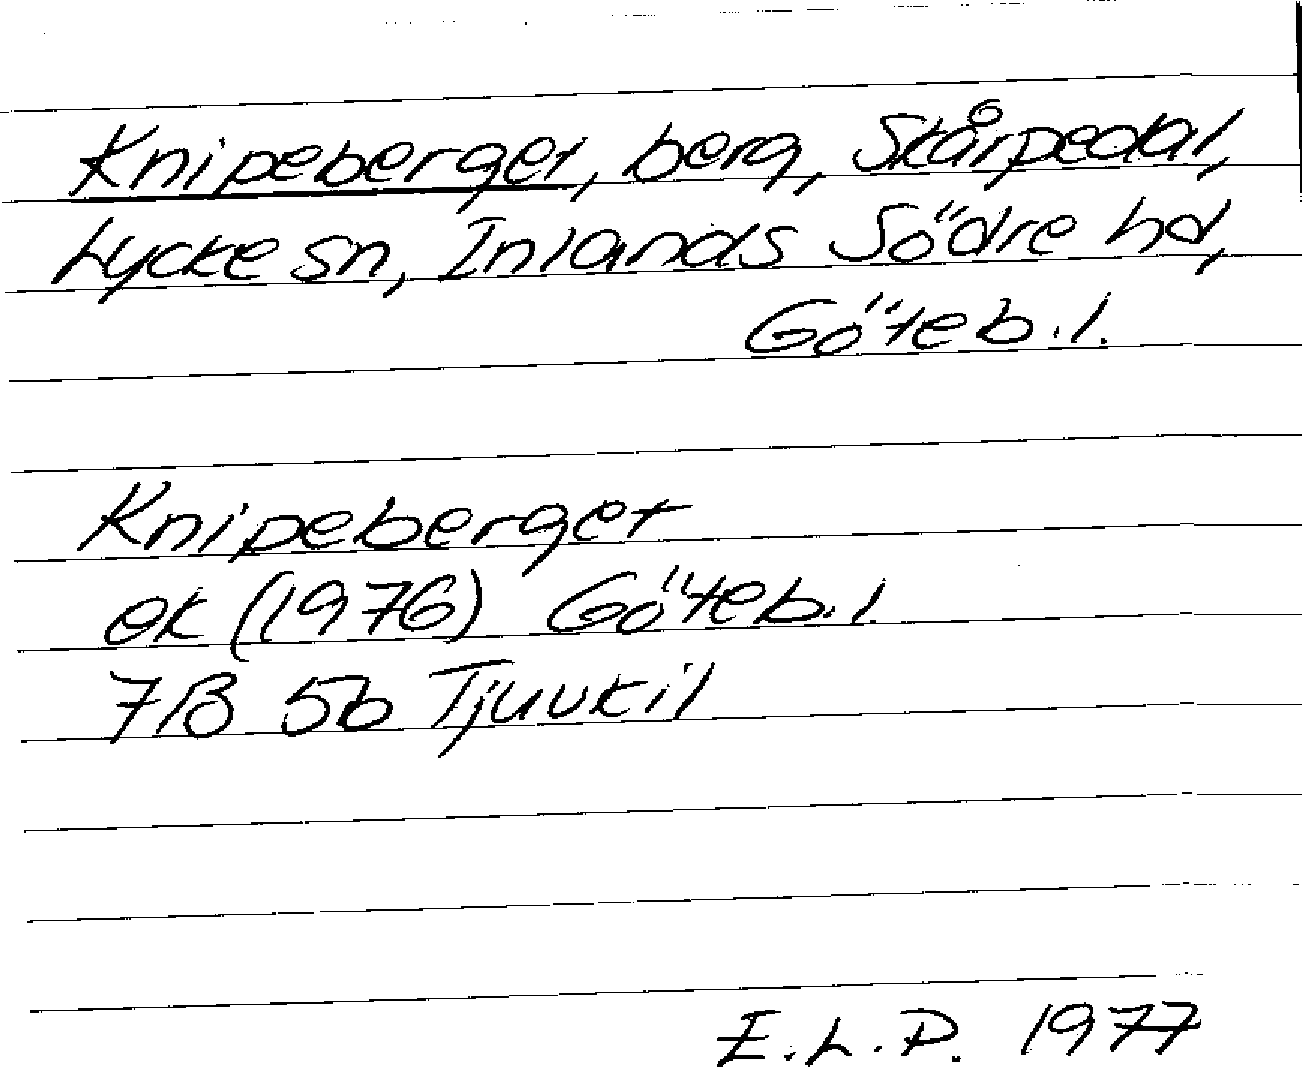 Knipeberget, berg, Skårpedal,
Lycke sn, Inlands Södre hd,
Göteb.l.
Knipeberget
ek (1976) Göteb.l.
7B 5b Tjuvkil
E.L.P. 1977